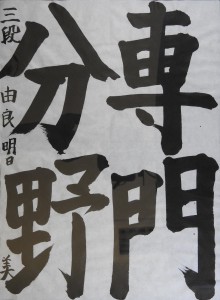 専門
分野
三段 由良明日美